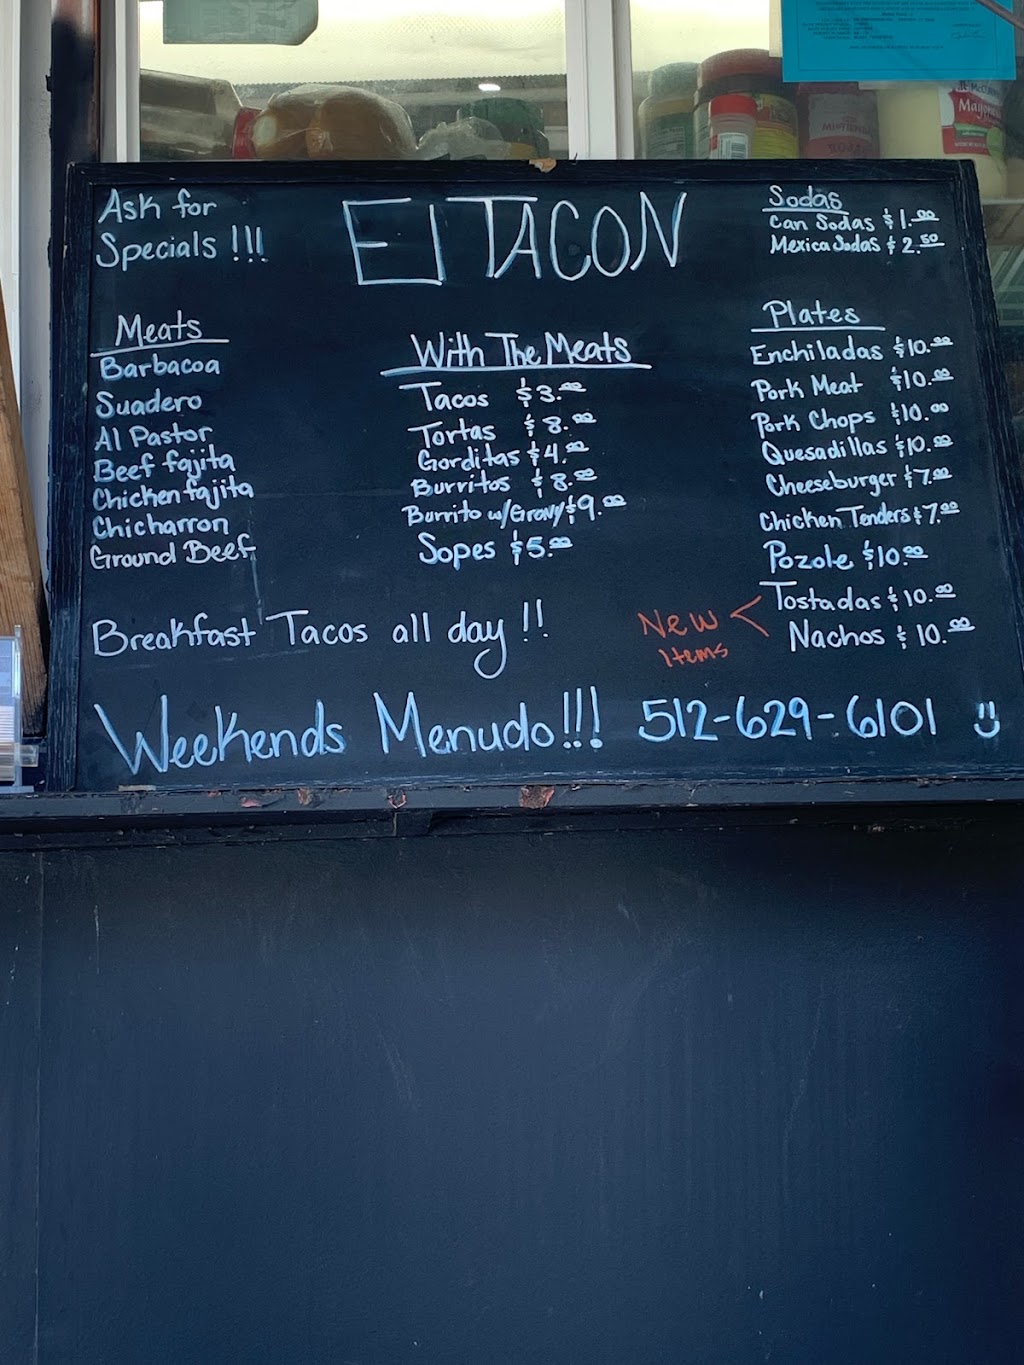 Ask for
Specials !!!
El TACON
Sodas
Can Sodas $1.00
Mexica Sodas $2.50
Meats
Barbacoa
Suadero
Al Pastor
Beef fajita
Chicken fajita
Chicharron
Ground Beef
With The Meats
Tacos $3.00
Tortas $8.00
Gorditas $4.00
Burritos $8.00
Burrito w/Gravy $9.00
Sopes $5.00
Plates
Enchiladas $10.00
Pork Meat $10.00
Pork Chops $10.00
Quesadillas $10.00
Cheeseburger $7.00
Chicken Tenders $7.00
Pozole $10.00
New Items < Tostadas $10.00
Nachos $10.00
Breakfast Tacos all day !!
Weekends Menudo!!! 512-629-6101